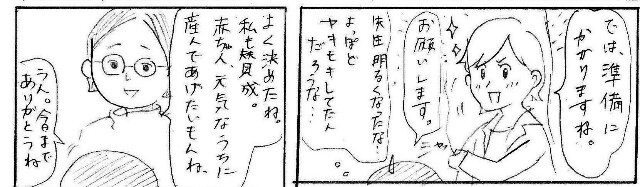 では、準備に
かかりますね。
お願いします。
先生明るくなったな
よっぽど
ヤキモキしてたん
だろうな…
ニャ
よく決めたね。
私も賛成。
赤ちゃん、元気なうちに
産んであげたいもんね。
うん。今まで
ありがとうね